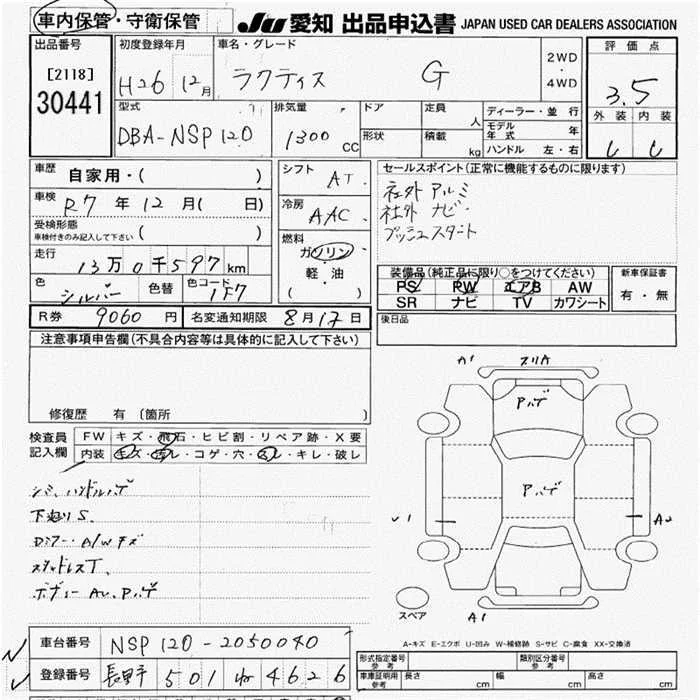 車内保管・守衛保管 JU 愛知 出品申込書 JAPAN USED CAR DEALERS ASSOCIATION
出品番号 [2118] 30441
初度登録年月 H26 12月
車名・グレード ラクティス G
2WD・4WD
評価点 3.5
外装 内装
型式 DBA-NSP120
排気量 1300 CC
ドア 形状
定員 人 積載 kg
ディーラー・並行
モデル年式 年
ハンドル 左・右
車歴 自家用・( )
車検 R7年12月( 日)
受検形態 車検付きのみ記入して下さい ( )
走行 13万0千597km
色 シルバー 色替 色コード 1F7
シフト AT
冷房 AAC
燃料 ガソリン・軽油 ( )
セールスポイント(正常に機能するものに限ります)
社外 アルミ
社外 ナビ
プッシュスタート
装備品(純正品に限り○をつけてください)
PS PW エアB AW
SR ナビ TV カワシート
新車保証書 有・無
R券 9060円 名変通知期限 8月17日
後日品
注意事項申告欄(不具合内容等は具体的に記入して下さい)
修復歴 有 (箇所 )
検査員記入欄
FW キズ・飛石・ヒビ割・リペア跡・X要
内装 キズ・汚レ・コゲ・穴・スレ・キレ・破レ
シミ、ハンドルハゲ
下廻りS
A/Wキズ
スタッドレスT
ボディー Aハゲ
A1 スリA
Aハゲ
Aハゲ
A2
スペア A1
A-キズ E-エクボ U-凹み W-補修跡 S-サビ C-腐食 XX-交換済
車台番号 NSP120-2050040
登録番号 長野 501 ね 4626
形式指定番号 参考 類別区分番号 参考
車庫証明用 参考 長さ cm 幅 cm 高さ cm